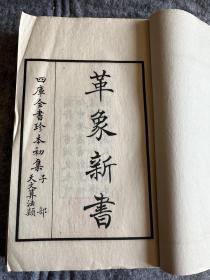 革象新書
四庫全書珍本初集
子部
天文算法類